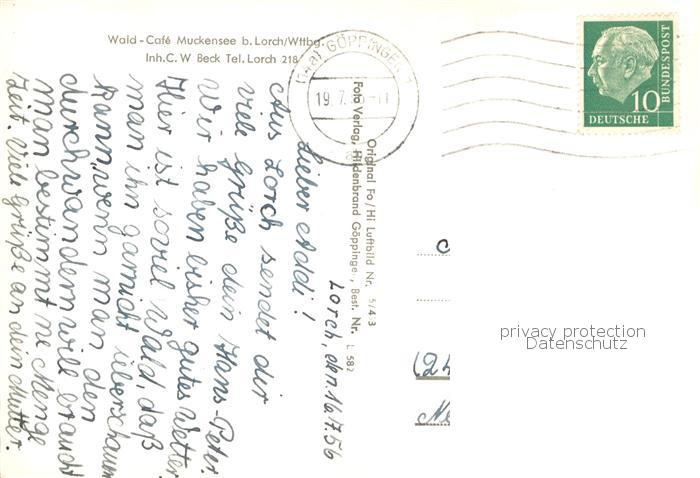 Wald-Café Muckensee b. Lorch/Wttbg.
Inh. C. W Beck Tel. Lorch 218
GÖPPINGEN
19.7.
10
DEUTSCHE
BUNDESPOST
Original Fo/Hi Luftbild Nr.
Foto Verlag, Hildenbrand Göppinge , Best. Nr. L 582
Lorch, den 16.7.56
Lieber Addi!
Aus Lorch sendet dir
viele Grüße dein Hans-Peter.
Wir haben bisher gutes Wetter.
Hier ist soviel Wald, daß
man ihn garnicht überschauen
kann, wenn man den
durchwandern will braucht
man bestimmt ne Menge
Zeit. Viele Grüße an dein Mutter.
(24
privacy protection
Datenschutz